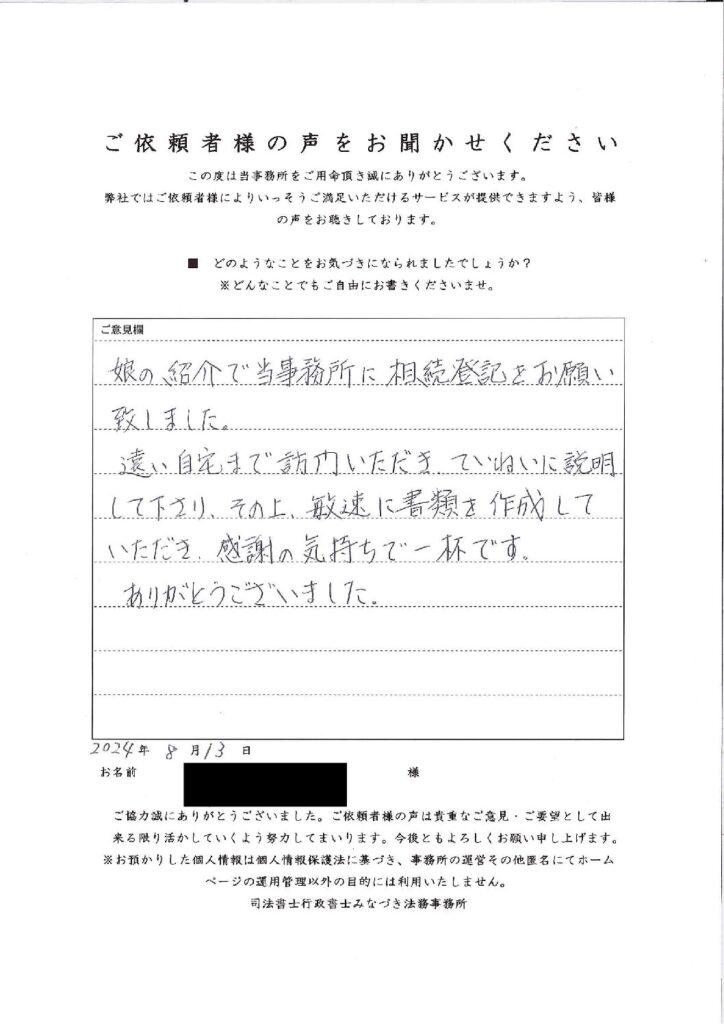 ご依頼者様の声をお聞かせください
この度は当事務所をご用命頂き誠にありがとうございます。
弊社ではご依頼者様によりいっそうご満足いただけるサービスが提供できますよう、皆様
の声をお聴きしております。
■ どのようなことをお気づきになられましたでしょうか？
※どんなことでもご自由にお書きくださいませ。
ご意見欄
娘の紹介で当事務所に相続登記をお願い
致しました。
遠い自宅まで訪門いただき、ていねいに説明
して下さり、その上、敏速に書類を作成して
いただき、感謝の気持ちで一杯です。
ありがとうございました。
2024年 8 月 13 日
お名前 様
ご協力誠にありがとうございました。ご依頼者様の声は貴重なご意見・ご要望として出
来る限り活かしていくよう努力してまいります。今後ともよろしくお願い申し上げます。
※お預かりした個人情報は個人情報保護法に基づき、事務所の運営その他匿名にてホーム
ページの運用管理以外の目的には利用いたしません。
司法書士行政書士みなづき法務事務所